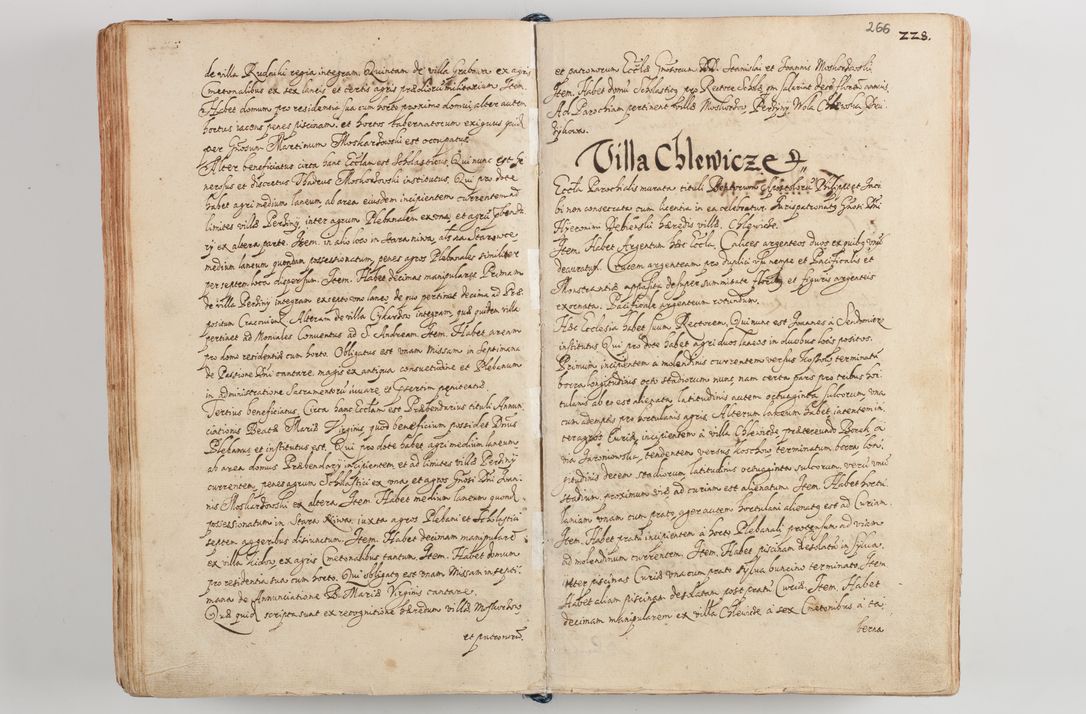 de villa Rudniki regia integram. Quintam de villa Grabowa ex agris
Cmetonalibus ex sex laneis et tertis agris prædiorum militarium. Item.
Habet domum pro residentia sua cum horto proxime domui, alter autem
hortus iacens penes piscinam, et hortos tabernatorum exiguus quid
per Gnosum Martinum Moskordowski est occupatus.
Alter beneficiatus circa hanc Ecclam est Scholasticus, Qui nunc est
nerosus et discretus Thadeus Moskordowski institutus. Qui pro dote
habet agri medium laneum ab area eiusdem incipientem currentem ad
limites villæ Perdiny, inter agrum Plebanalem ex una, et agrū
ry ex altera parte. Item. in alio loco in Stara niwa, als na Starowce
medium laneum quondam possessionatum, penes agros Plebanales similiter
per septem loca dispersum. Item. Habet decimas manipulares Primam
de villa Perdiny integram exceptis uno laneo, de quo pertinet decima ad Præ
positum Cracovien. Alteram de villa Cykardow integram, quæ quidem villa
pertinet ad Moniales Conventus ad S. Andream. Item. Habet aream
pro domo residentiæ cum horto. Obligatus est vnam Missam in Septimana
de Passione Dni cantare, magis ex antiqua consuetudine et Plebanum
in administratione Sacramentorū iuvare, et præsertim penitentiæ.
Tertius beneficiatus Circa hanc Ecclam est Præbendarius tituli Annun
ciationis Beatæ Mariæ Virginis, quod beneficium possidet Dnus
Plebanus et institutus est. Qui pro dote habet agri medium laneum
ab area domus Præbendarÿ incipientem et ad limites villæ Perdiny
currentem, penes agrum Scholastici ex vna, et agros Gnosi Dni Ioan
nis Moskordowski ex altera. Item. Habet medium laneum quond.
possessionatum in Stara Niwa iuxta agros Plebani et Scholastici
septem aggeribus disiunctum. Item. Habet decimam manipularē
ex villa Lidow, ex agris Cmetonalibus tantum. Item. Habet domum
pro residentia sua cum horto. Qui obligatus est vnam Missam in septi
mana de Annunciatione B. Mariæ Virginis cantare.
Quæ quidē scripta sunt ex recognitione hæredum villæ
et patronorū.
266
228.
et patronorum Ecclæ Gnosorum DD. Stanislai et Ioannis Moskordowski.
Item. Habet domū Scholasticę pro Rectore Scholæ, cum salario florenorū annuis.
Ad Parochiam pertinent villæ Moskordow, Perdiny, Wola Chlewska,
dykowa.
Villa Chlewicze
Eccla Parochialis murata tituli Apostolorū Philippi et Iaco
bi non consecrata cum licentia in ea celebratur. Iurispatronatus Gnosi Dni
Hyeronimi hæredis villæ Chlewicze.
Item. Habet Argentum hæc Eccla. Calices argenteos duos ex quibus unus
deauratus. Crucem argenteam pro duplici usu nempe et Pacificalis et
Monstrantiæ apposita desuper summitate floribus et figuris argenteis
exornata. Pacificale argenteum rotundum.
Hæc Ecclesia habet suum Rectorem, Qui nunc est Ioannes à Sendomiria
institutus Qui pro dote habet agri duos laneos in duobus locis positos.
Primum incipientem à molendinis currentem versus Koscholi terminatū
borra longitudinis octo stadiorum nunc nam certa pars pro tribus hor
tulanis ab eo est alienata, latitudinis autem octuaginta sulcorum, una
cum ademptis pro hortulanis agris. Alterum laneum habet iacentem in
ter agros Curiæ, incipientem à villa Chlewicze prætereundo Borek à
via Iaroniowska, tendentem versus Koscholow terminatum borra long
gitudinis decem stadiorum latitudinis octuaginta sulcorum, verū unū
stadium proximum viæ ad curiam est alienatum. Item. Habet hortu
laniam vnam cum prato, ager autem hortulani alienatus est ad Curiam.
Item. Habet pratū incipientem à horto Plebanali protensum ad viam
ad molendinum currentem. Item. Habet piscinam desolatā in sylva
inter piscinas Curiæ vna cum prato sylva buncino terminato. Item
Habet aliam piscinam desolatam post pratū Curiæ. Item. Habet
decimam manipularem ex villa Chlewicze à sex Cmetonibus à ta,
berna